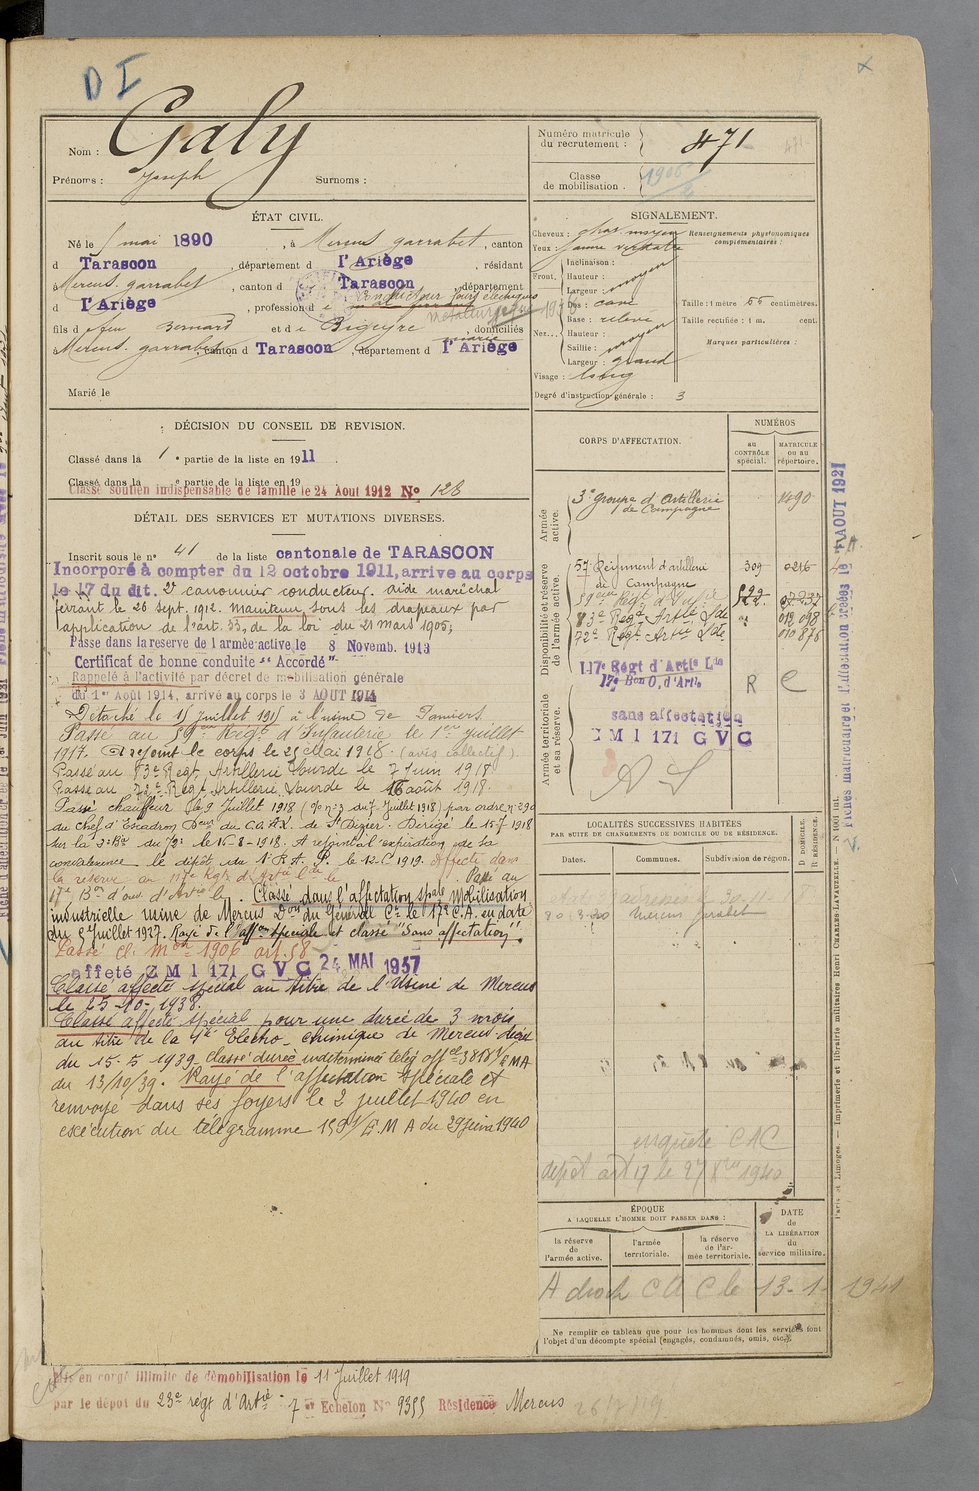 D I
Nom : Galy
Prénoms : Joseph Surnoms :
Numéro matricule du recrutement : 471
Classe de mobilisation : 1906
ÉTAT CIVIL.
Né le 5 mai 1890, à Mercus garrabet, canton
d Tarascon, département d l'Ariège, résidant
à Mercus. garrabet, canton d Tarascon, département
d l'Ariège, profession d conducteur fours électriques
fils d e feu Bernard et d e Bigeyre, domiciliés
à Mercus. garrabet, canton d Tarascon, département d l'Ariège
Marié le
SIGNALEMENT.
Cheveux : chat. moyen
Yeux : jaune verdatre
Renseignements physionomiques complémentaires :
Front. Inclinaison :
Hauteur : moyen
Largeur :
Nez... Dos : cave
Base : relevé
Hauteur : moyen
Saillie :
Largeur : grand
Visage : long
Taille : 1 mètre 66 centimètres.
Taille rectifiée : 1 m. cent.
Marques particulières :
Degré d'instruction générale : 3
DÉCISION DU CONSEIL DE REVISION.
Classé dans la 1e partie de la liste en 1911.
Classé dans la e partie de la liste en 19
Classé soutien indispensable de famille le 24 Aout 1912 No 128
DÉTAIL DES SERVICES ET MUTATIONS DIVERSES.
Inscrit sous le no 41 de la liste cantonale de TARASCON
Incorporé à compter du 12 octobre 1911, arrive au corps
le 17 du dit. 2e canonnier conducteur. aide maréchal
ferrant le 26 sept. 1912. Maintenu sous les drapeaux par
application de l'art. 33, de la loi du 21 mars 1905;
Passé dans la reserve de l'armée active, le 8 Novemb. 1913
Certificat de bonne conduite "Accordé"
Rappelé à l'activité par décret de mobilisation générale
du 1er Août 1914, arrivé au corps le 3 AOUT 1914
Détaché le 15 juillet 1915 à l'usine de Pamiers.
Passé au 59eme Régt d'Infanterie le 1er juillet
1917. A rejoint le corps le 25 Mai 1918. (avis collectif).
Passé au 83e Régt Artillerie Lourde le 7 Juin 1918
Passé au 72e Régt Artillerie Lourde le 16 août 1918.
Passé chauffeur le 9 Juillet 1918 (Jo no 3 du 7 Juillet 1918) par ordre no 290
du chef d'Escadron Dteur du C.O.A.L. de St Dizier. Dirigé le 15-7-1918
sur la 3e Bie du 72e le 16-8-1918. A rejoint à l'expiration de sa
convalescence le dépôt du 1er R. A. P. le 12-6-1919. Affecté dans
la réserve au 117e Régt d'Artie Lde le . Passé au
17e Bon d'ouv. d'Artie le . Classé dans l'affectation spale Mobilisation
industrielle mine de Mercus Don du Général Ct le 17e C.A. en date
du 5 Juillet 1927. Rayé de l'affon spéciale et classé "Sans affectation".
Passé cl. Mon 1906 art. 58
affeté C M I 171 G V C 24 MAI 1937
Classé affecté spécial au titre de l'Usine de Mercus
le 25-10-1938.
Classé affecté spécial pour une durée de 3 mois
au titre de la Sté Electro-chimique de Mercus décis
du 15-5-1939 classé durée indéterminée télég offel 3818 1/EMA
du 13/10/39. Rayé de l'affectation spéciale et
renvoyé dans ses foyers le 2 juillet 1940 en
exécution du télégramme 1591/E M A du 29 juin 1940
CORPS D'AFFECTATION.
NUMÉROS
au CONTRÔLE spécial.
MATRICULE ou au répertoire.
Armée active.
3e groupe d'artillerie de Campagne 1490
Disponibilité et réserve de l'armée active.
57 Régiment d'artillerie de Campagne 309 0216
59eme Régt d'Infie 522 07237
83e Régt Artie Lde " 012 098
72e Régt Artie Lde 010 876
117e Régt d'Artie Lde
17e Bon O. d'Artie R C
Armée territoriale et sa réserve.
sans affectation
C M I 171 G V C
A S
LOCALITÉS SUCCESSIVES HABITÉES
PAR SUITE DE CHANGEMENTS DE DOMICILE OU DE RÉSIDENCE.
Dates. Communes. Subdivision de région. D. DOMICILE. R. RÉSIDENCE.
Mercus Garabet
enquête C A C
depot art 17 le 27 8bre 1940
ÉPOQUE
A LAQUELLE L'HOMME DOIT PASSER DANS :
la réserve de l'armée active.
l'armée territoriale.
la réserve de l'armée territoriale.
DATE de LA LIBÉRATION du service militaire.
A droit C A C le 13-1-1941
Ne remplir ce tableau que pour les hommes dont les services font
l'objet d'un décompte spécial (engagés, condamnés, omis, etc.).
Mis en congé illimité de démobilisation le 11 Juillet 1919
par le dépot du 23e régt d'Artie 7e Echelon No 9355 Résidence Mercus
Paris et Limoges. — Imprimerie et librairie militaires Henri CHARLES-LAVAUZELLE.